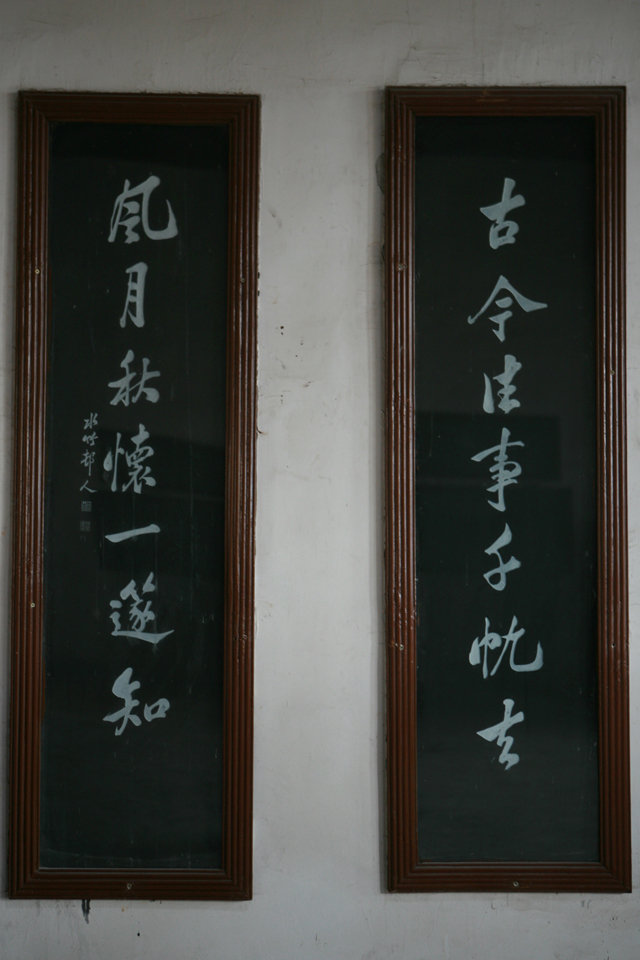 古今往事千帆去
風月秋懷一篴知
水竹邨人